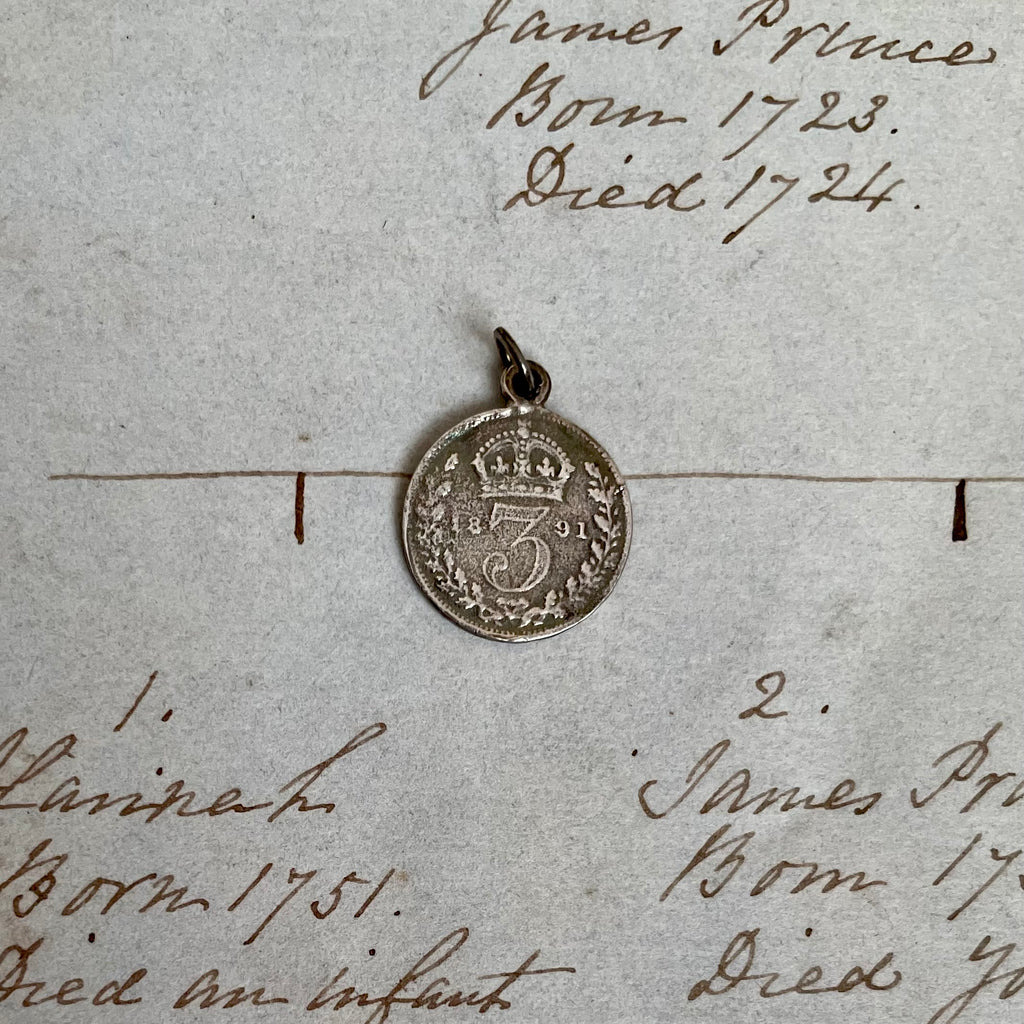 James Prince
Born 1723.
Died 1724.
18 3 91
1.
Hannah
Born 1751.
Died an infant
2.
James
Born
Died